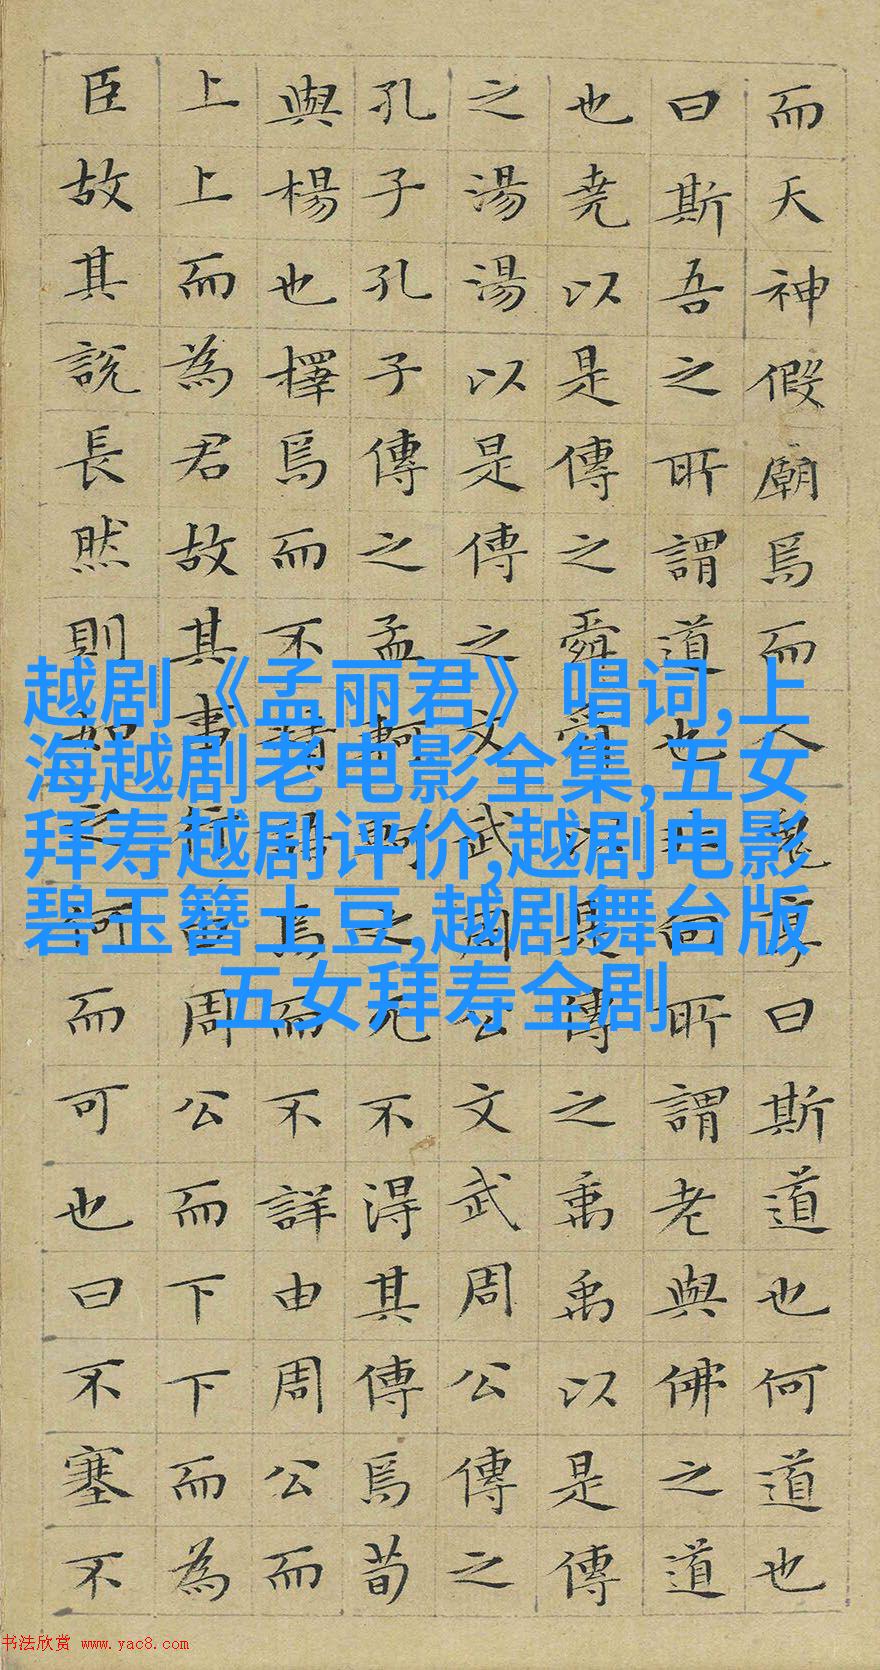 而天神假廟焉而人鬼享曰斯道也何道也
曰斯吾之所謂道也非向所謂老與佛之道
也堯以是傳之舜舜以是傳之禹禹以是傳
之湯湯以是傳之文武周公文武周公傳之
孔子孔子傳之孟軻軻之死不得其傳焉荀
與楊也擇焉而不精語焉而不詳由周公而
上上而為君故其事行周公而下下而為
臣故其說長然則如之何而可也曰不塞不
越剧《孟丽君》唱词,上
海越剧老电影全集,五女
拜寿越剧评价,越剧电影
碧玉簪土豆,越剧舞台版
五女拜寿全剧
书法欣赏 www.yac8.com